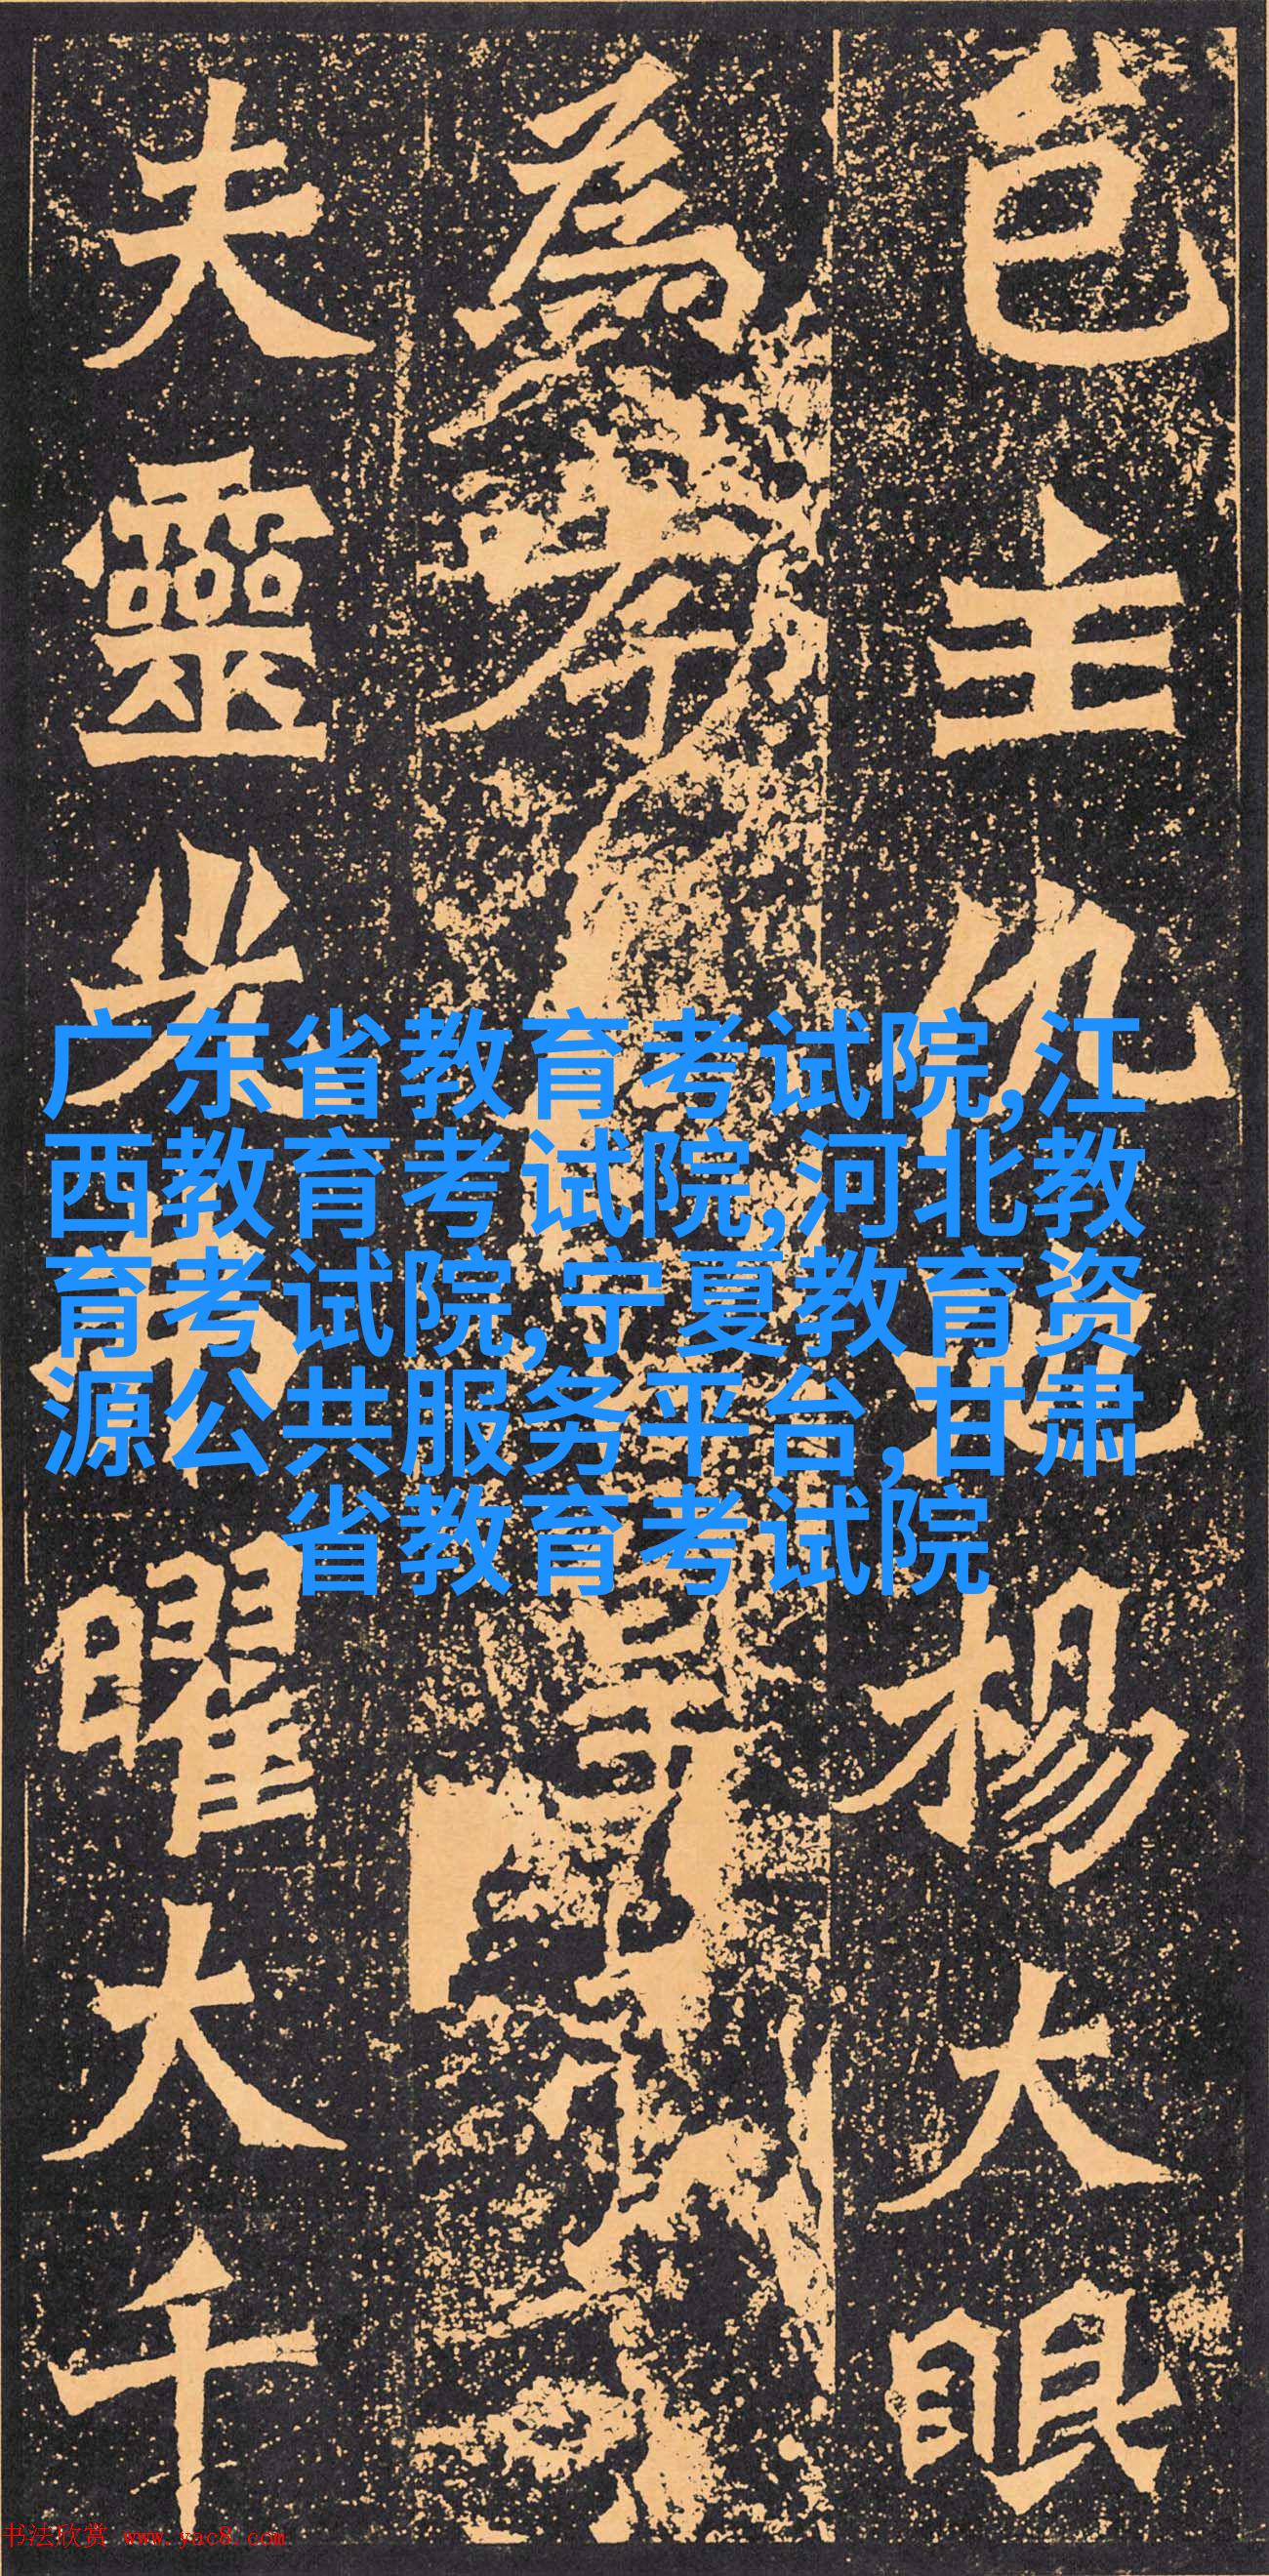 邑主仇池楊大眼
為孝
夫靈光弗曜大千
广东省教育考试院,江
西教育考试院,河北教
育考试院,宁夏教育资
源公共服务平台,甘肃
省教育考试院
书法欣赏 www.yac8.com